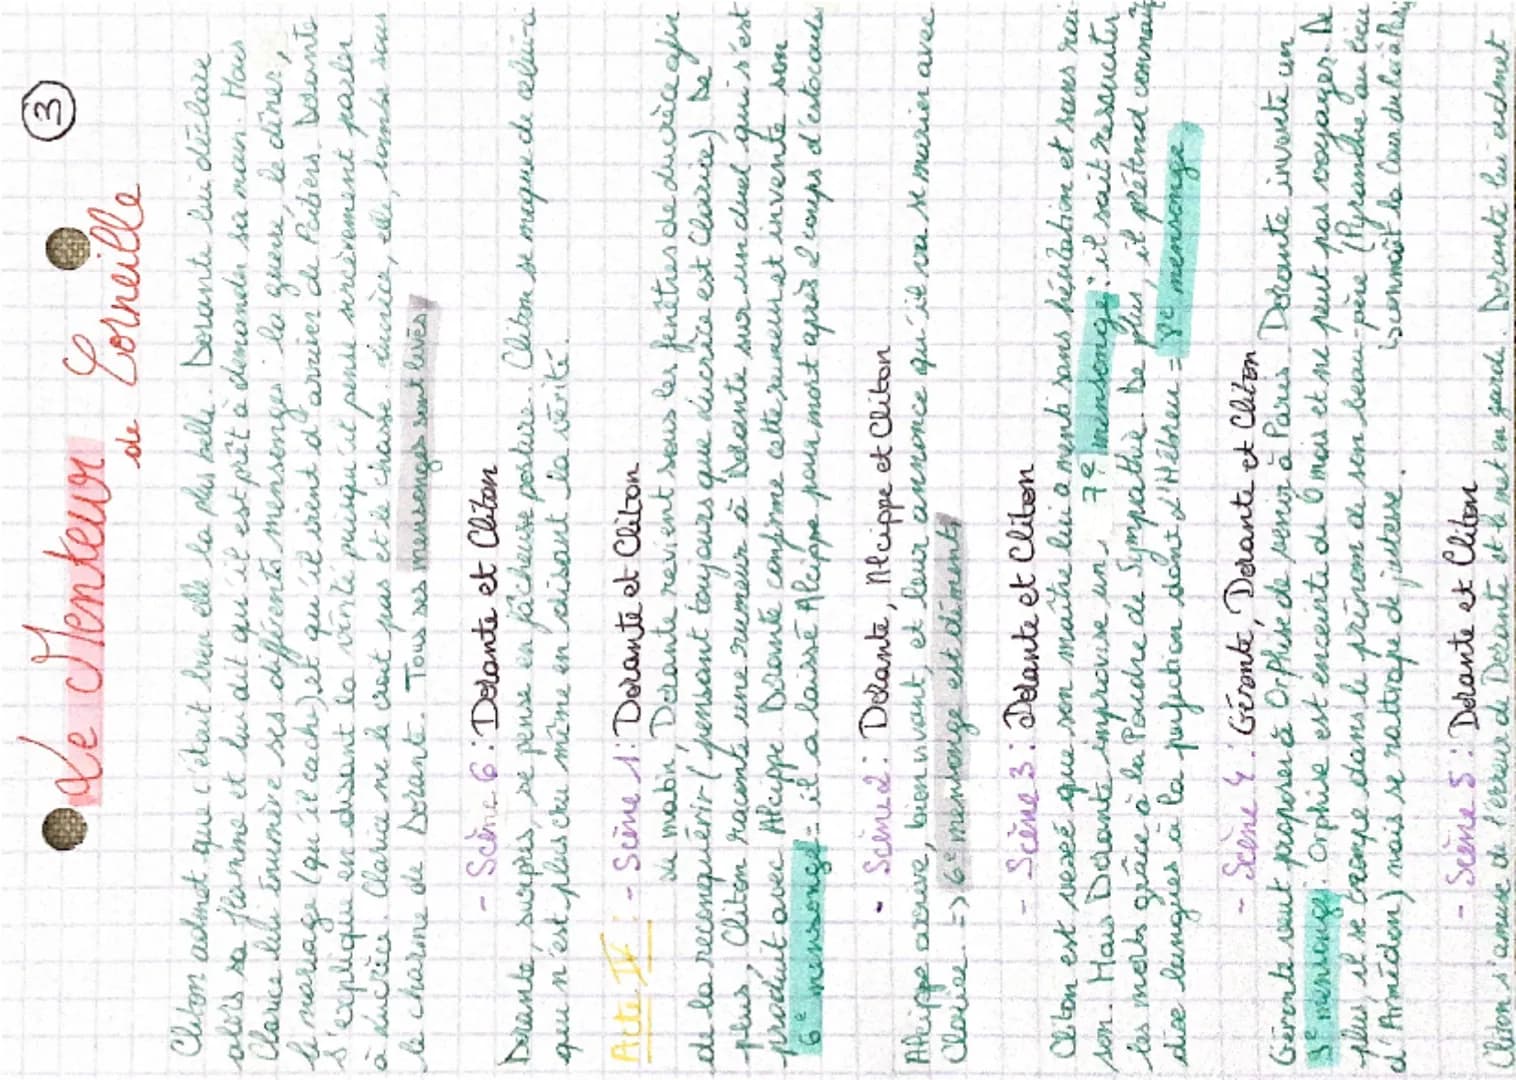 3
Le Menteur
de Corneille
Cliton admet que c'était bien elle la plus belle. Dorante lui déclare
alors sa flamme et lui dit qu'il est prêt à demander sa main. Mais
Clarice lui énumère ses différents mensonges: la guerre, le dîner,
le mariage (qu'il cache) et qu'il vient d'arriver de Poitiers. Dorante
s'explique en disant la vérité puisqu'il pense sincèrement parler
à Lucrèce. Clarice ne le croit pas et le chasse. Lucrèce, elle, tombe sous
le charme de Dorante. Tous ses mensonges sont levés.
- Scène 6 : Dorante et Cliton
Dorante, surpris, se pense en fâcheuse posture. Cliton se moque de celui-ci
qui n'est plus cru même en disant la vérité.
Acte IV : - Scène 1 : Dorante et Cliton
Au matin, Dorante revient sous les fenêtres de Lucrèce afin
de la reconquérir (pensant toujours que Lucrèce est Clarice). De
plus, Cliton raconte une rumeur à Dorante sur un duel qui s'est
produit avec Alcippe. Dorante confirme cette rumeur et invente son
6e mensonge = il a laissé Alcippe pour mort après 2 coups d'estocade
- Scène 2 : Dorante, Alcippe et Cliton
Alcippe arrive, bien vivant, et leur annonce qu'il va se marier avec
Clarice. => 6e mensonge est démenti
- Scène 3 : Dorante et Cliton
Cliton est vexé que son maître lui a menti sans hésitation et sans rai-
son. Mais Dorante improvise un 7e mensonge : il sait ressusciter
les morts grâce à la Poudre de Sympathie. De plus, il prétend connaît
dix langues à la perfection dont l'Hébreu = 8e mensonge
- Scène 4 : Géronte, Dorante et Cliton
Géronte veut proposer à Orphise de venir à Paris. Dorante invente un
9e mensonge : Orphise est enceinte de 6 mois et ne peut pas voyager. De
plus, il se trompe dans le prénom de son beau-père (Pyrandre au lieu
d'Armédon) mais se rattrape de justesse.
- Scène 5 : Dorante et Cliton
Cliton s'amuse de l'erreur de Dorante et le met en garde. Dorante lui admet